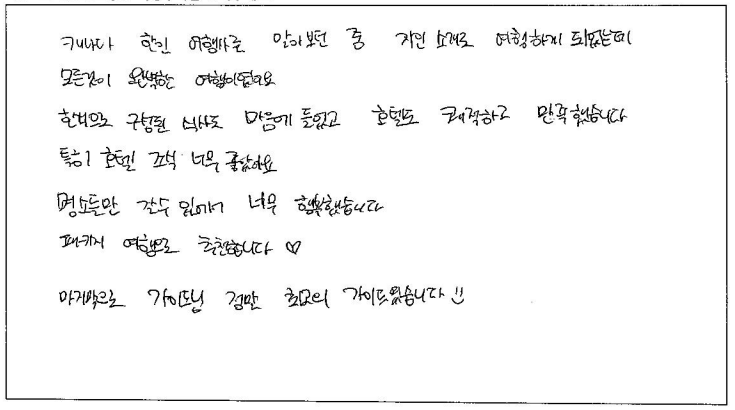 캐나다 한인 여행사를 알아보던 중 지인 소개로 여행하게 되었는데
모든것이 완벽한 여행이었어요
한식으로 구성된 식사도 마음에 들었고 호텔도 쾌적하고 만족했습니다
특히 호텔 조식 너무 좋았어요
명소들만 갈수 있어서 너무 행복했습니다
패키지 여행으로 추천합니다 ♡
마지막으로 가이드님 정말 최고의 가이드였습니다 !!